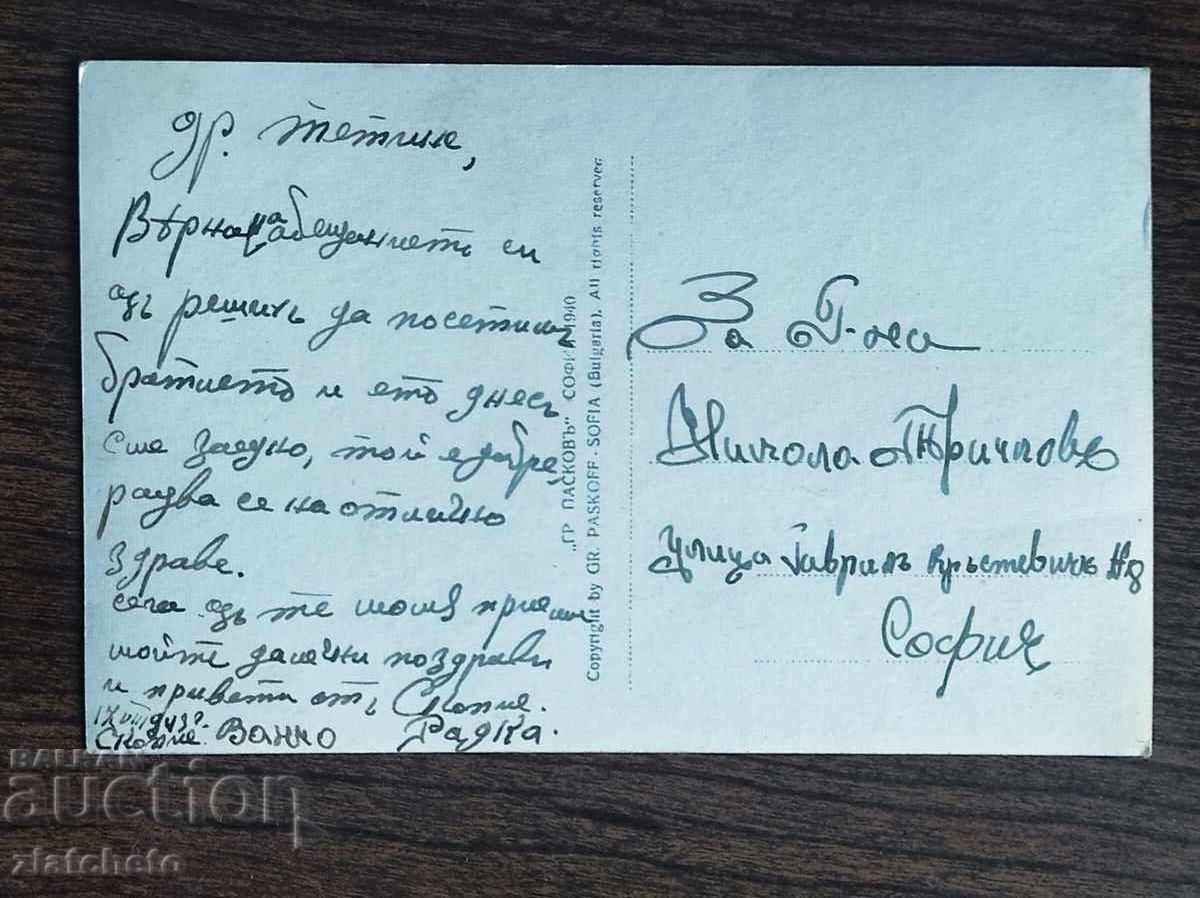 др. тетинк,
Вѣрна на обещанието си
азъ реших да посетим
братчето и ето днес
сме заедно, той е добре,
радва се на отлично
здраве.
сега азъ те моля приеми
мойте далечни поздрави
и привети отъ Скопие.
Скопие. Ванко Радка.
„ГР ПАСКОВЪ" СОФИЯ 1940
Copyright by GR. PASKOFF - SOFIA (Bulgaria). All rights reserver.
За Г-на
Никола
Улица Гаврилъ Кръстевичъ
София
BALKAN
auction
zlatcheto